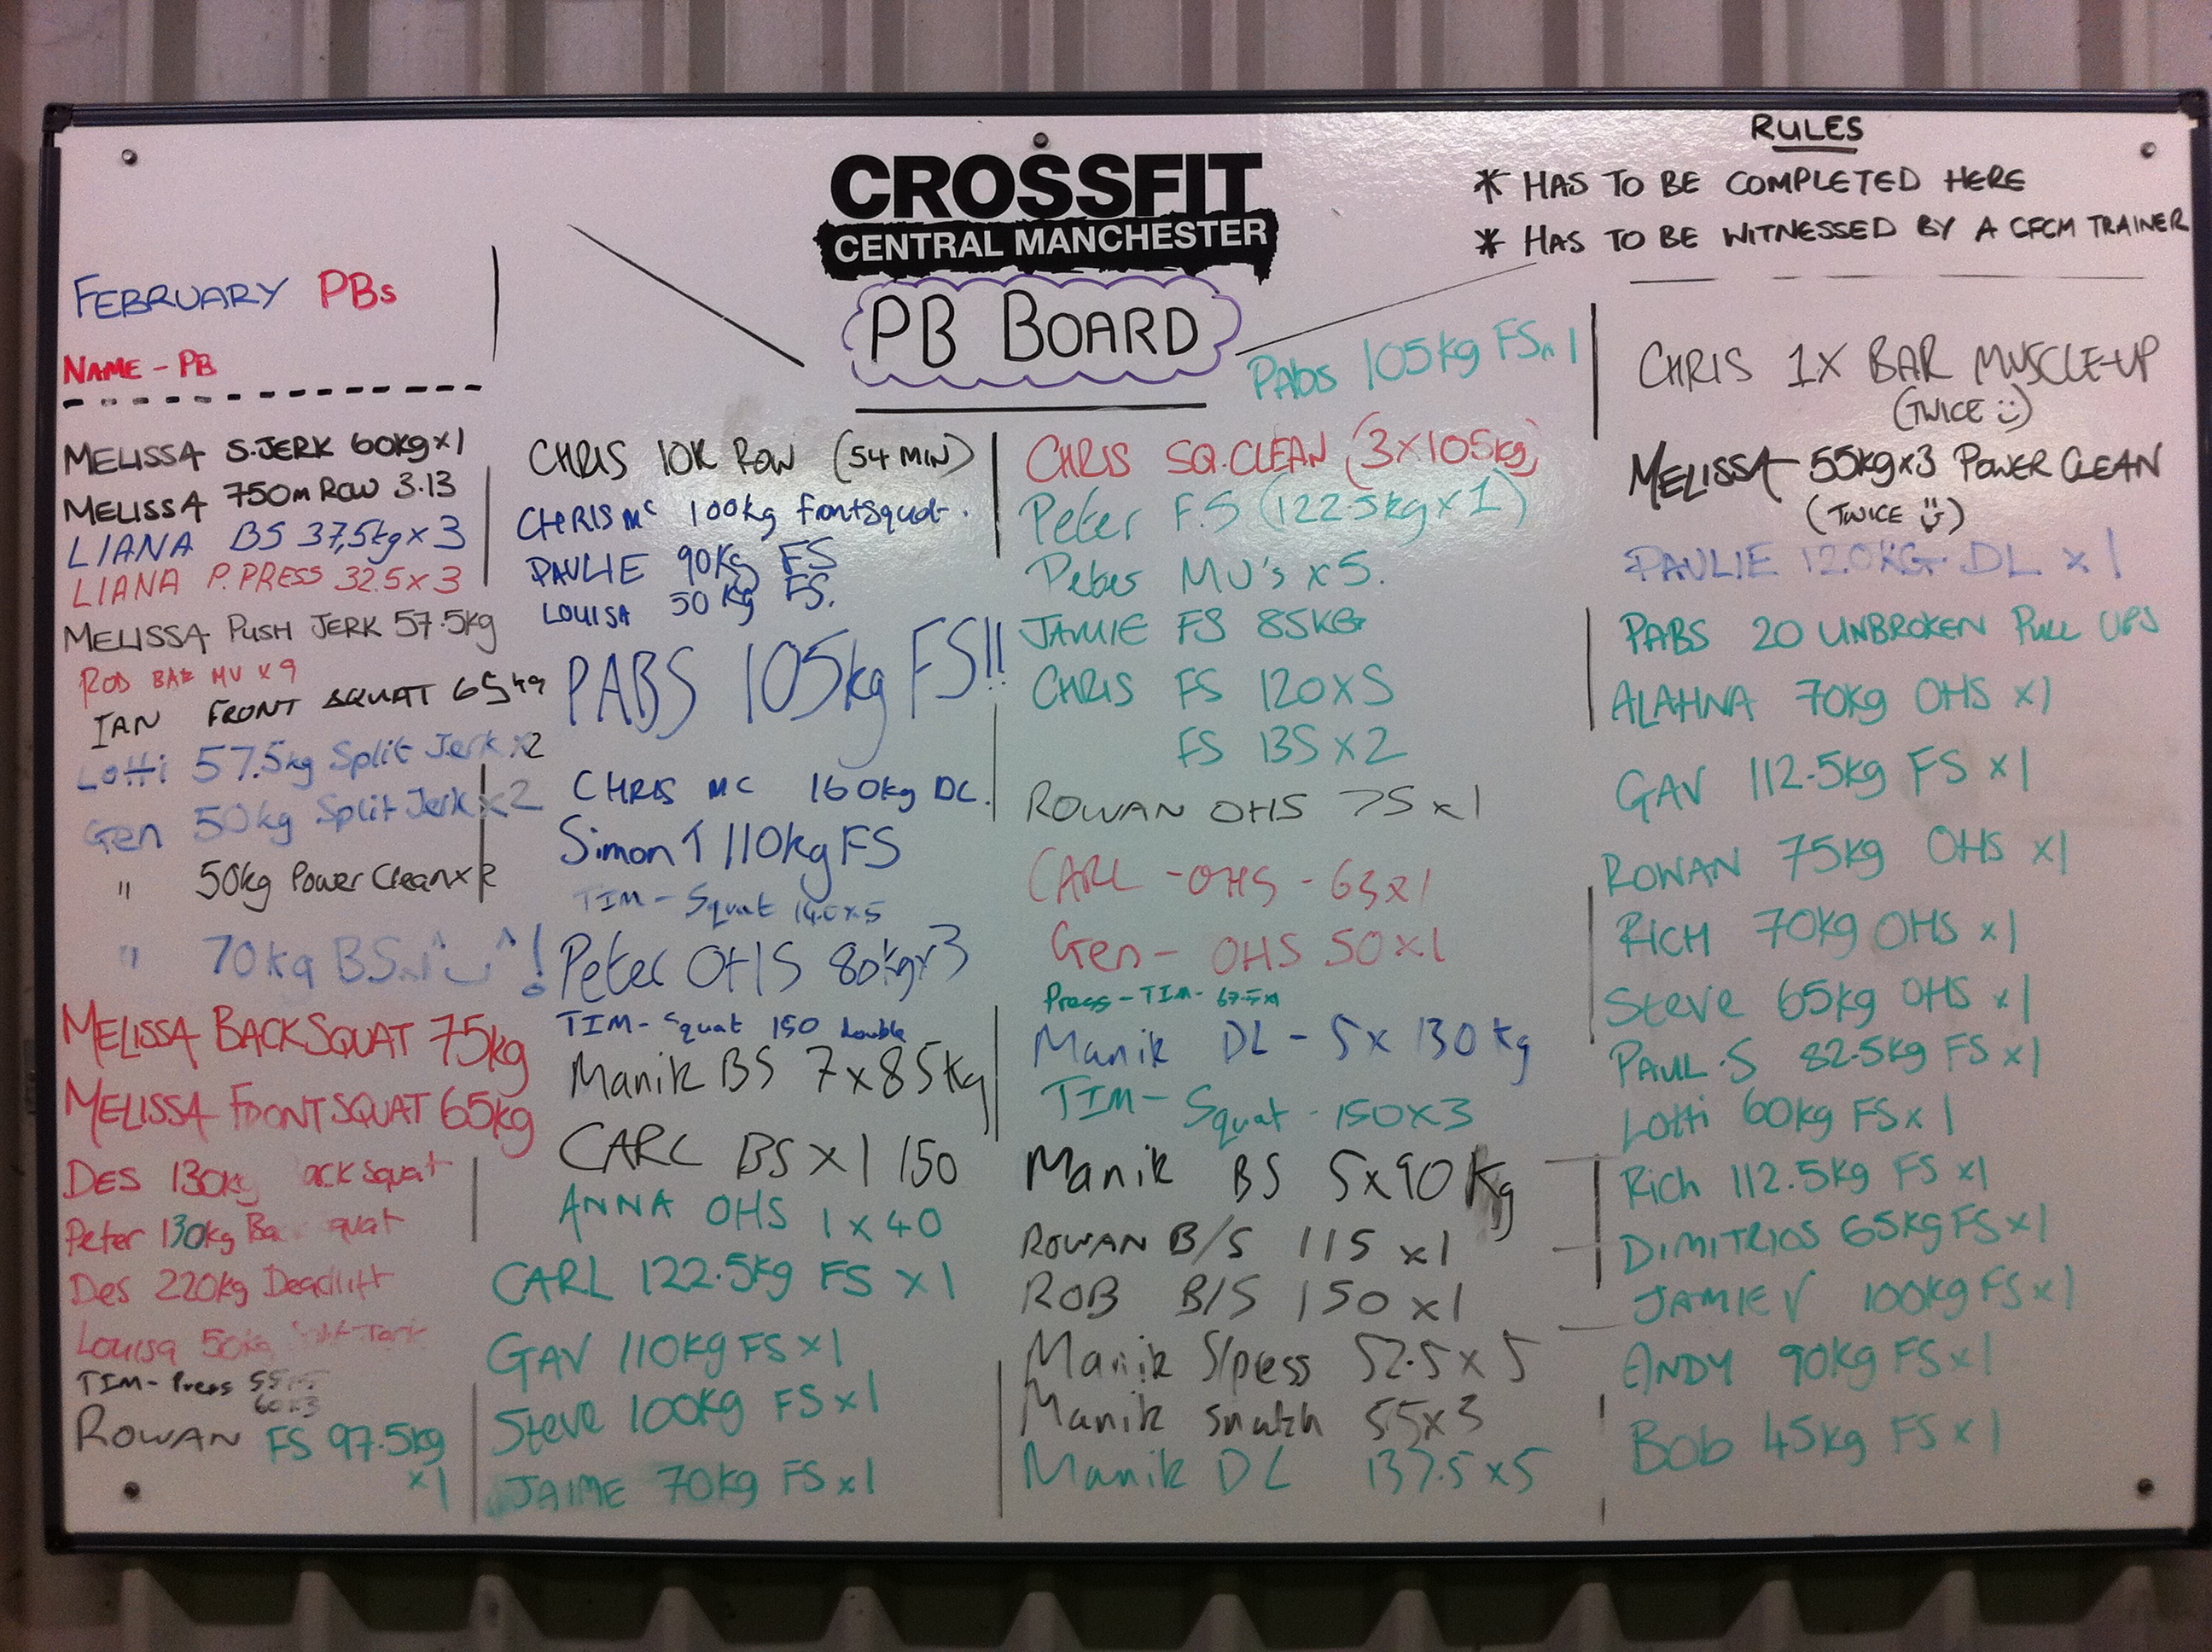 CROSSFIT
CENTRAL MANCHESTER
PB BOARD
RULES
* HAS TO BE COMPLETED HERE
* HAS TO BE WITNESSED BY A CFCM TRAINER
FEBRUARY PBs
NAME - PB
MELISSA S.JERK 60kg x1
MELISSA 750m ROW 3.13
LIANA BS 37,5kg x 3
LIANA P. PRESS 32.5 x 3
MELISSA PUSH JERK 57.5kg
ROB BAR MU x 9
IAN FRONT SQUAT 65kg
Lotti 57.5kg Split Jerk x2
Gen 50kg Split Jerk x2
" 50kg Power Clean x 2
" 70kg BS x1 !
MELISSA BACKSQUAT 75kg
MELISSA FRONTSQUAT 65kg
DES 130kg ack Squat
Peter 130kg Ba quat
Des 220kg Deadlift
Louisa 50kg
TIM - Press 55
60x3
ROWAN FS 97.5kg
x1
CHRIS 10K ROW (54 MIN)
CHRIS Mc 100kg frontsquat.
PAULIE 90Kg FS
LOUISA 50 Kg FS.
PABS 105kg FS!!
CHRIS MC 160kg DL.
Simon T 110kg FS
TIM - Squat 140x5
Peter OHS 80kg x3
TIM - Squat 150 double
Manik BS 7x85kg
CARL BS X 1 150
ANNA OHS 1 x 40
CARL 122.5kg FS x1
GAV 110kg FS x1
Steve 100kg FS x1
JAIME 70kg FS x1
Pabs 105kg FS x 1
CHRIS SQ.CLEAN (3x105kg)
Peter F.S (122.5kg x 1)
Peter MU's x 5.
JAMIE FS 85KG
CHRIS FS 120 x 5
FS 135 x 2
ROWAN OHS 75 x 1
CARL - OHS - 63x1
Gen - OHS 50x1
Press - TIM - 67.5x1
Manik DL - 5 x 130 kg
TIM - Squat - 150x3
Manik BS 5x90 kg
ROWAN B/S 115 x1
ROB B/S 150 x1
Manik S/press 52.5 x 5
Manik snatch 55x3
Manik DL 137.5 x5
CHRIS 1X BAR MUSCLE-UP
(TWICE :))
MELISSA 55kgx3 POWER CLEAN
(TWICE :))
PAULIE 120KG. DL x 1
PABS 20 UNBROKEN PULL UPS
ALAHNA 70kg OHS x1
GAV 112.5kg FS x1
ROWAN 75kg OHS x1
RICH 70kg OHS x1
Steve 65kg OHS x1
PAUL.S 82.5kg FS x1
Lotti 60kg FS x 1
Rich 112.5kg FS x1
DIMITRIOS 65kg FS x1
JAMIE V 100kg FS x1
ANDY 90kg FS x1
Bob 45kg FS x1